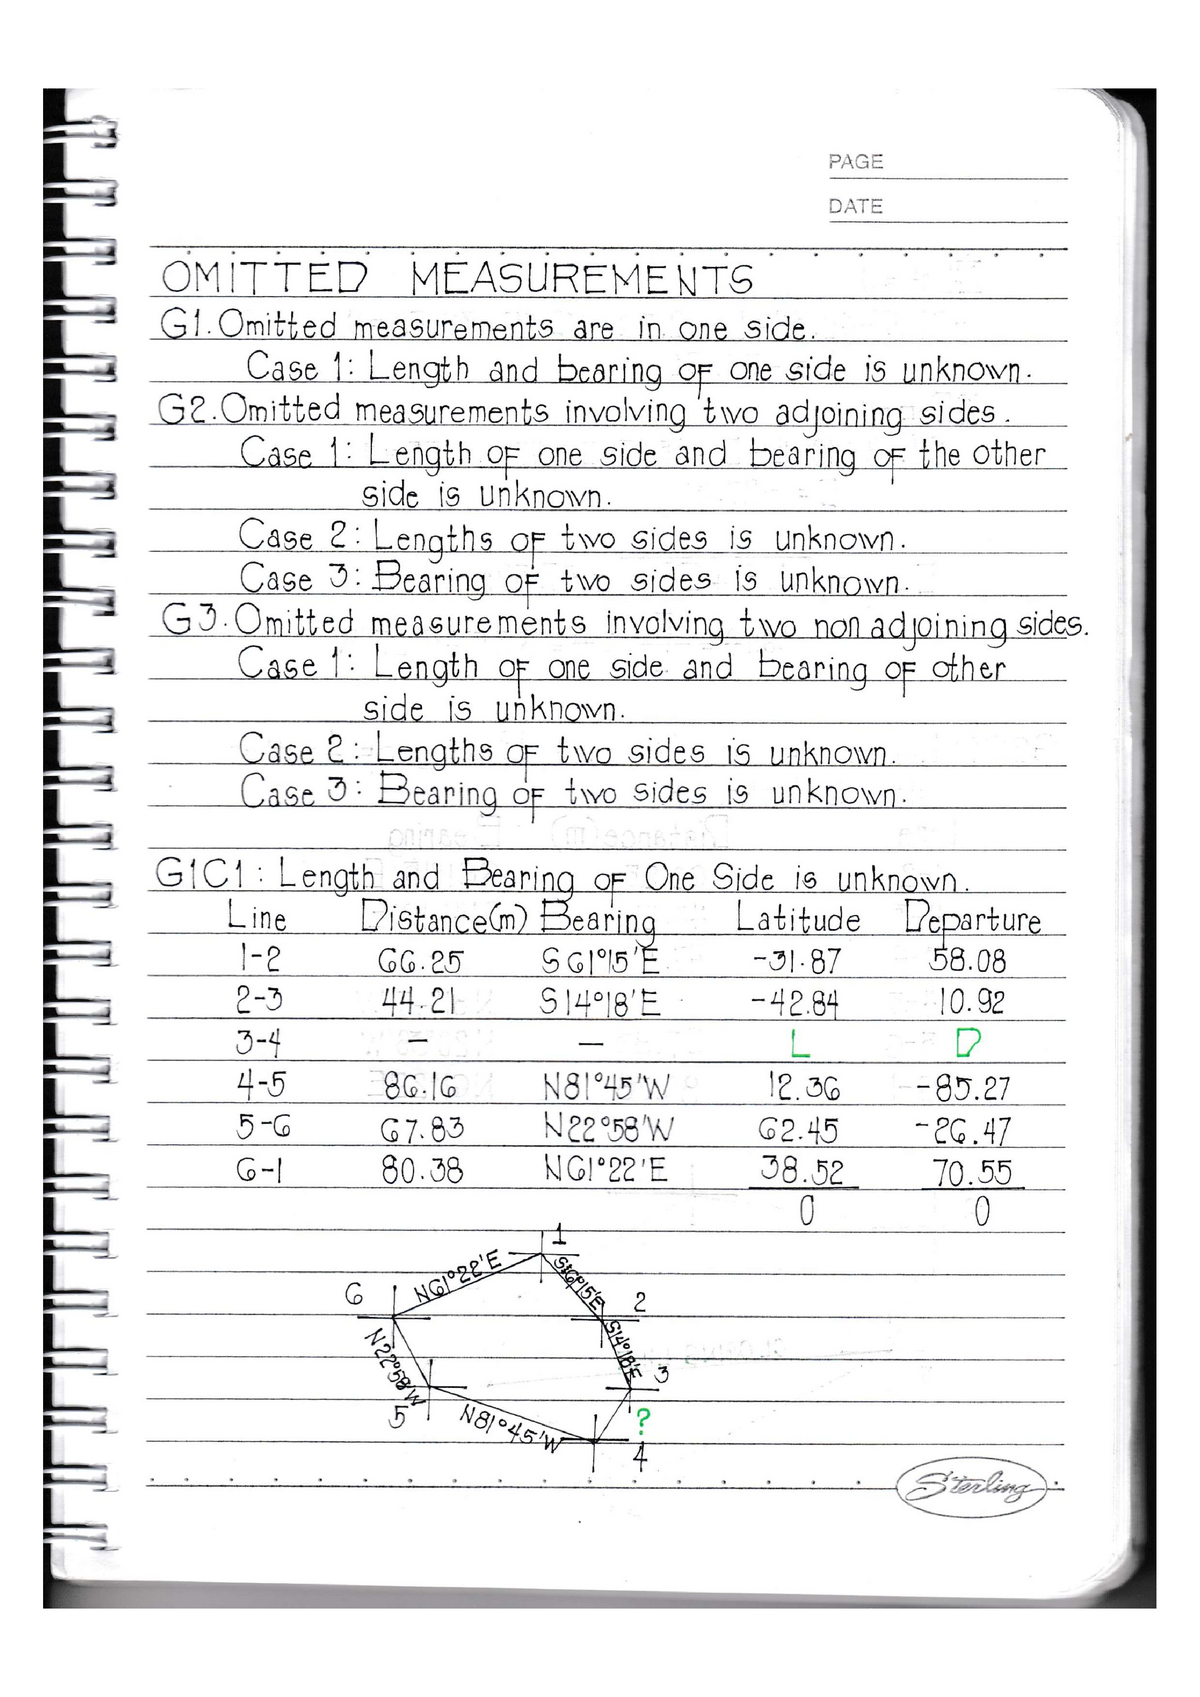 PAGE
DATE
OMITTED MEASUREMENTS
G1. Omitted measurements are in one side.
Case 1: Length and bearing of one side is unknown.
G2. Omitted measurements involving two adjoining sides.
Case 1: Length of one side and bearing of the other
side is unknown.
Case 2: Lengths of two sides is unknown.
Case 3: Bearing of two sides is unknown.
G3. Omitted measurements involving two non adjoining sides.
Case 1: Length of one side and bearing of other
side is unknown.
Case 2: Lengths of two sides is unknown.
Case 3: Bearing of two sides is unknown.
G1C1: Length and Bearing of One Side is unknown.
Line Distance(m) Bearing Latitude Departure
1-2 66.25 S61°15'E -31.87 58.08
2-3 44.21 S14°18'E -42.84 10.92
3-4 — — L D
4-5 86.16 N81°45'W 12.36 -85.27
5-6 67.83 N22°58'W 62.45 -26.47
6-1 80.38 N61°22'E 38.52 70.55
0 0
1
N61°22'E
6
2
S14°18'E
N22°58'W
3
5
N81°45'W
?
4
Sterling